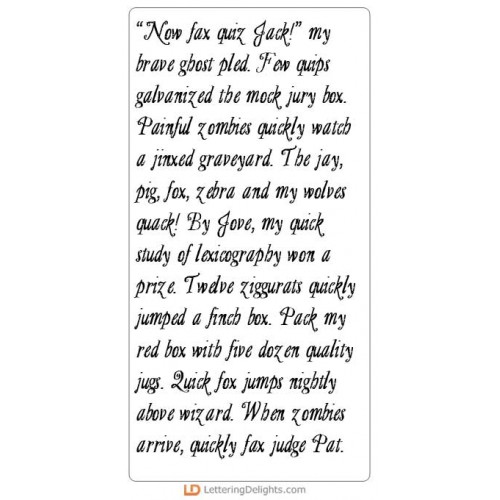 “Now fax quiz Jack!” my
brave ghost pled. Few quips
galvanized the mock jury box.
Painful zombies quickly watch
a jinxed graveyard. The jay,
pig, fox, zebra and my wolves
quack! By Jove, my quick
study of lexicography won a
prize. Twelve ziggurats quickly
jumped a finch box. Pack my
red box with five dozen quality
jugs. Quick fox jumps nightly
above wizard. When zombies
arrive, quickly fax judge Pat.
LD LetteringDelights.com